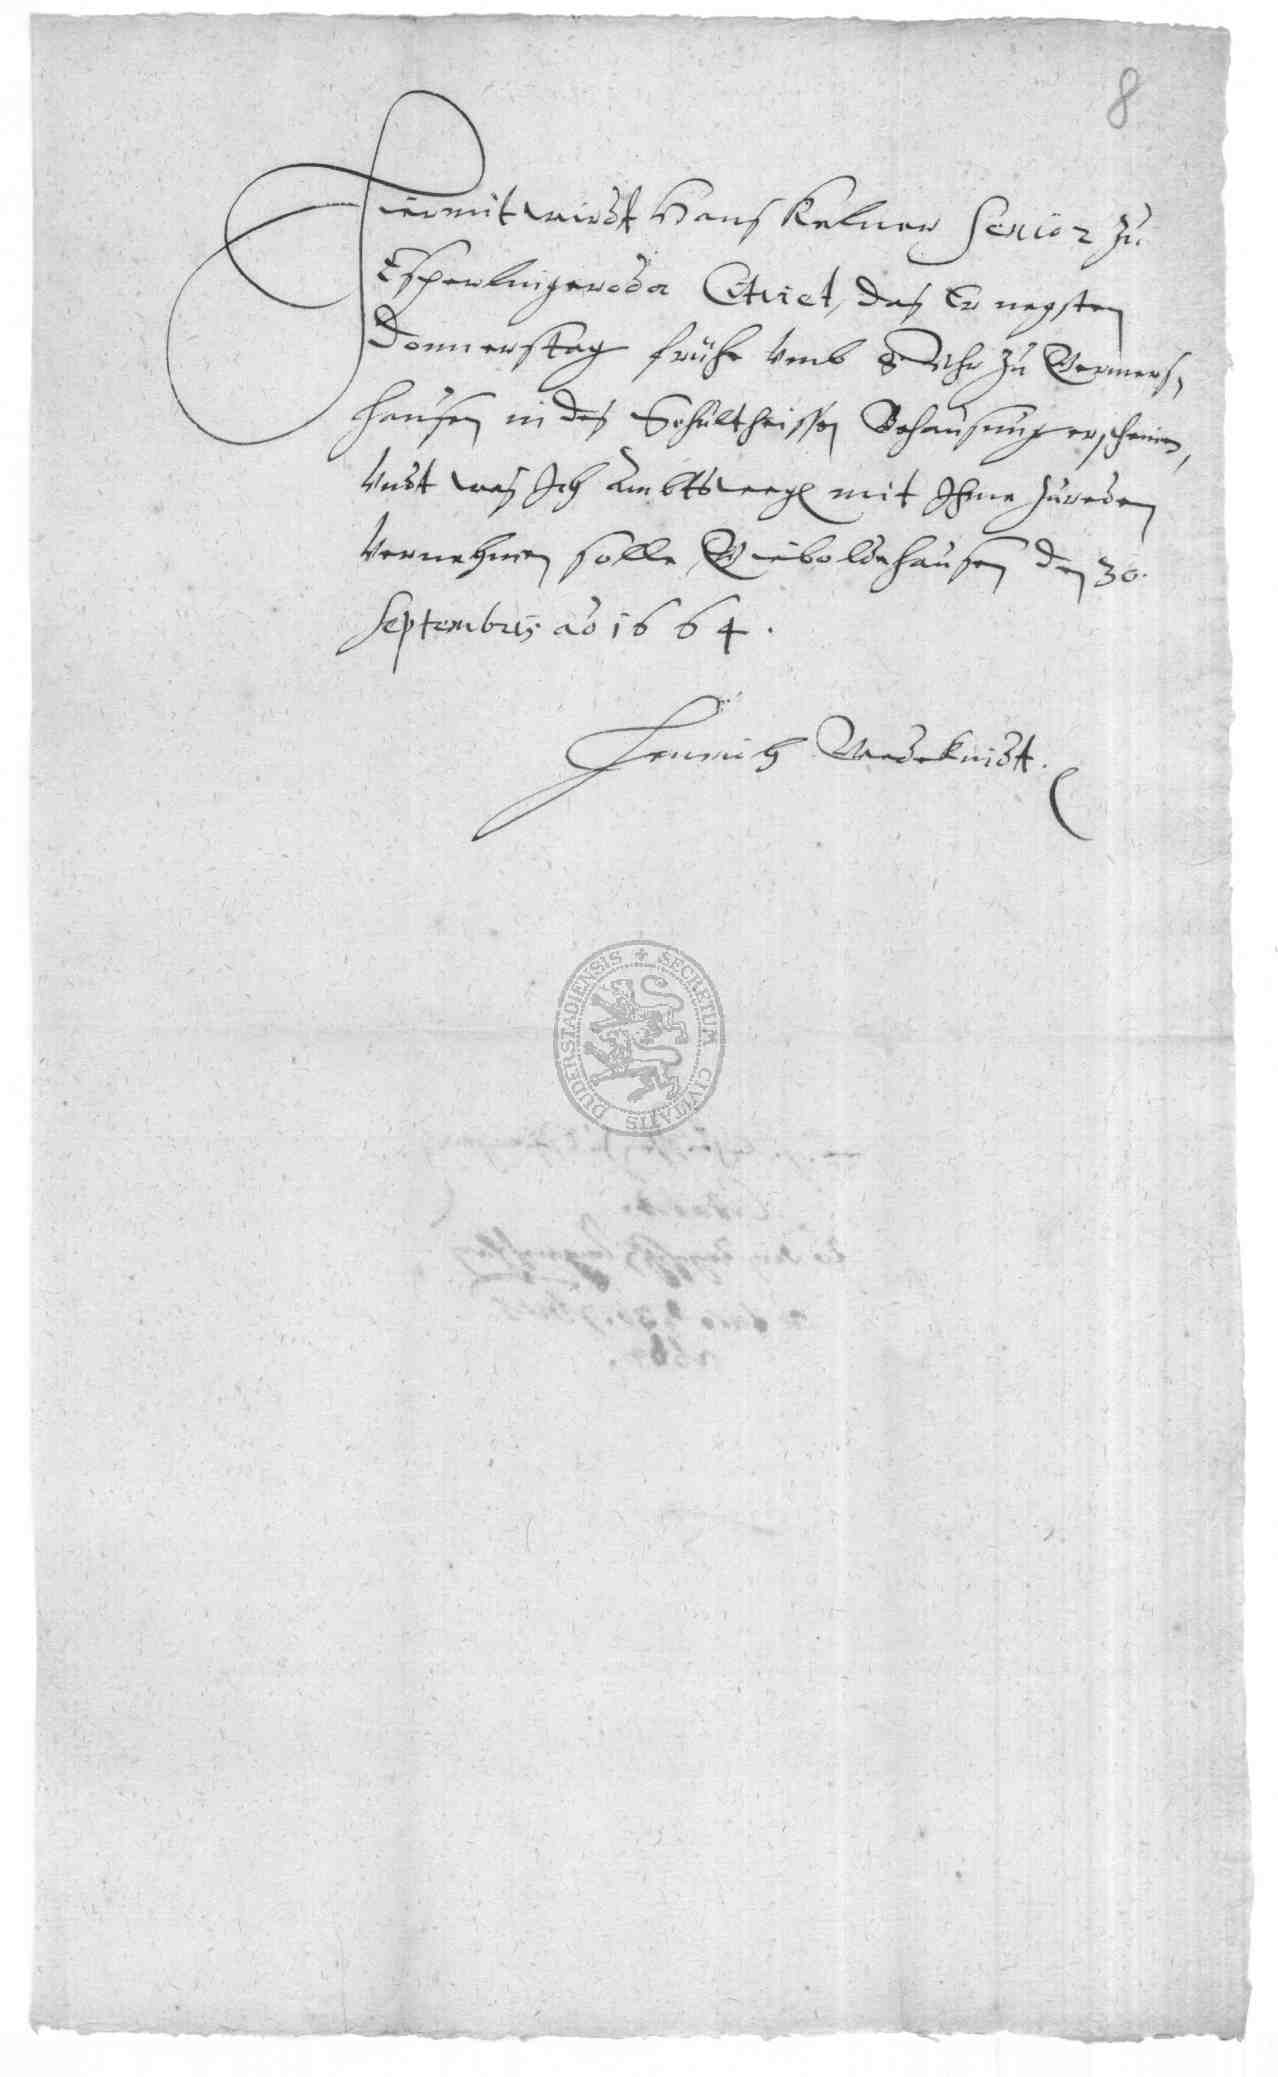 8
Hiermit wirdt Hans Kelner Senior zu
Esperlingeroda Citiret, das Er negsten
Donnerstag frühe vmb 8 Vhr zu Germers,
hausen in des Schultheissen Behausung erscheinen,
Vndt was Ich Ambtswegen mit Ihme zureden
Vernehmen solle, Gieboldehausen den 30.
Septembris ao 1664.
Henrich
SECRETUM CIVITATIS DUDERSTADIENSIS